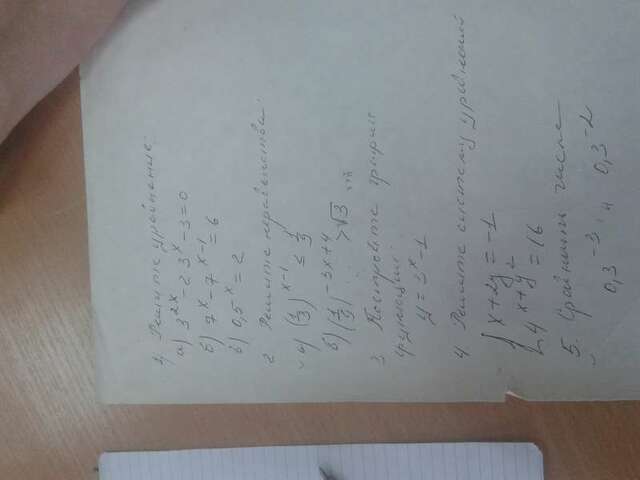 1. Решите уравнение:
а) 3^{2x} - 2·3^x - 3 = 0
б) 7^x - 7^{x-1} = 6
в) 0,5^x = 2
2. Решите неравенства:
а) (1/3)^{x-1} ≤ 1/9
б) (1/9)^{-3x+4} > √3
3. Постройте график
функции:
4. Решите систему уравнений
{ x + 2y = -1
4^{x+y^2} = 16
5. Сравнить числа
0,3^{-3} и 0,3^{-2}